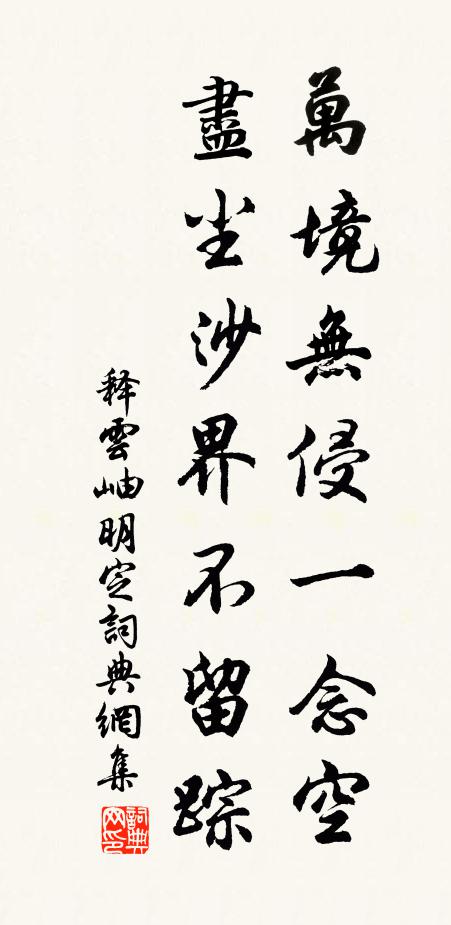 萬境無侵一念空
盡尘沙界不留踪
释雲岫明定詞典網集
詞典网印